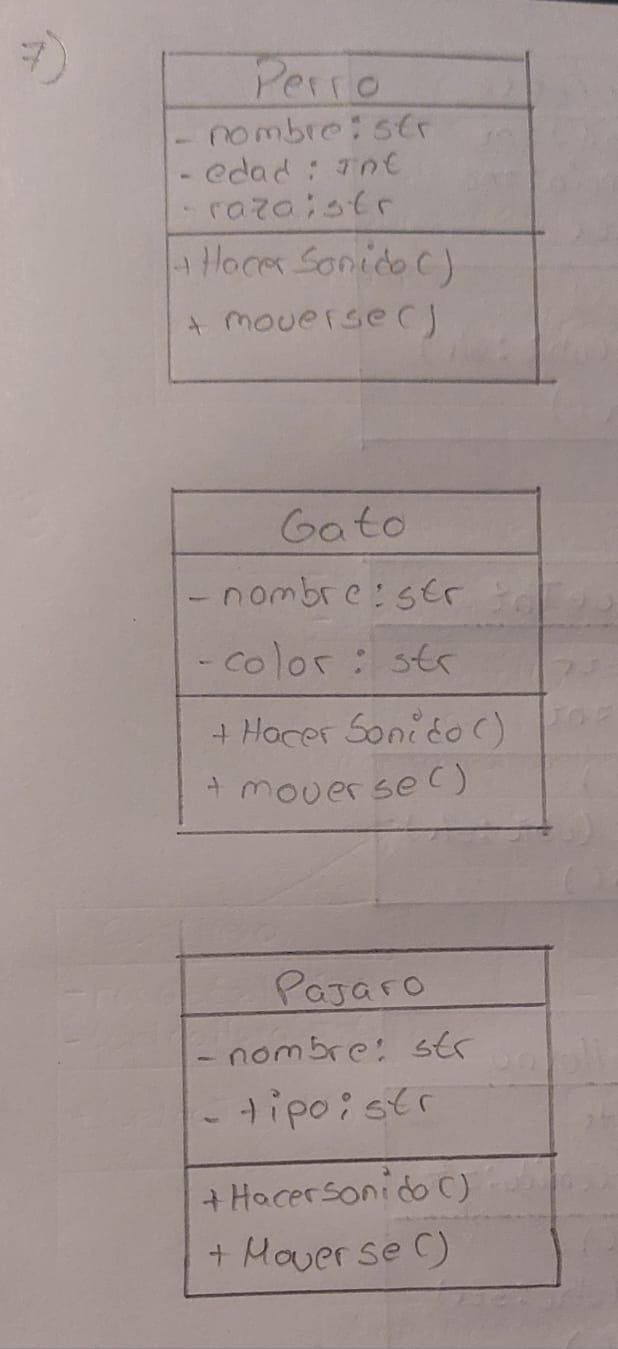 7)
Perro
- nombre: str
- edad: Int
- raza: str
+ Hacer Sonido()
+ moverse()
Gato
- nombre: str
- color: str
+ Hacer Sonido()
+ moverse()
Pajaro
- nombre: str
- tipo: str
+ Hacersonido()
+ Moverse()